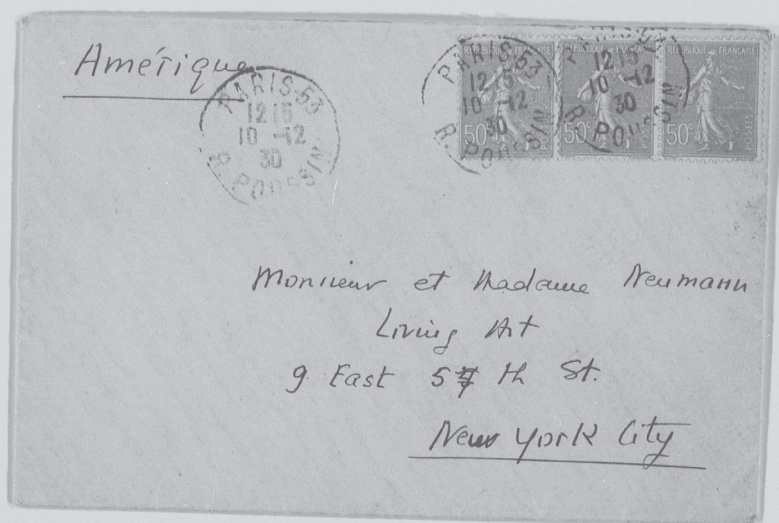 Amérique
PARIS-53
12 15
10 -12
30
R. POUSSIN
PARIS-53
12 15
10 -12
30
R. POUSSIN
12 15
10 -12
30
POUSSIN
REPUBLIQUE FRANÇAISE
50c
POSTES
REPUBLIQUE FRANÇAISE
50c
POSTES
REPUBLIQUE FRANÇAISE
50c
POSTES
Monsieur et Madame Neumann
Living Art
9 East 57 th St.
New York City